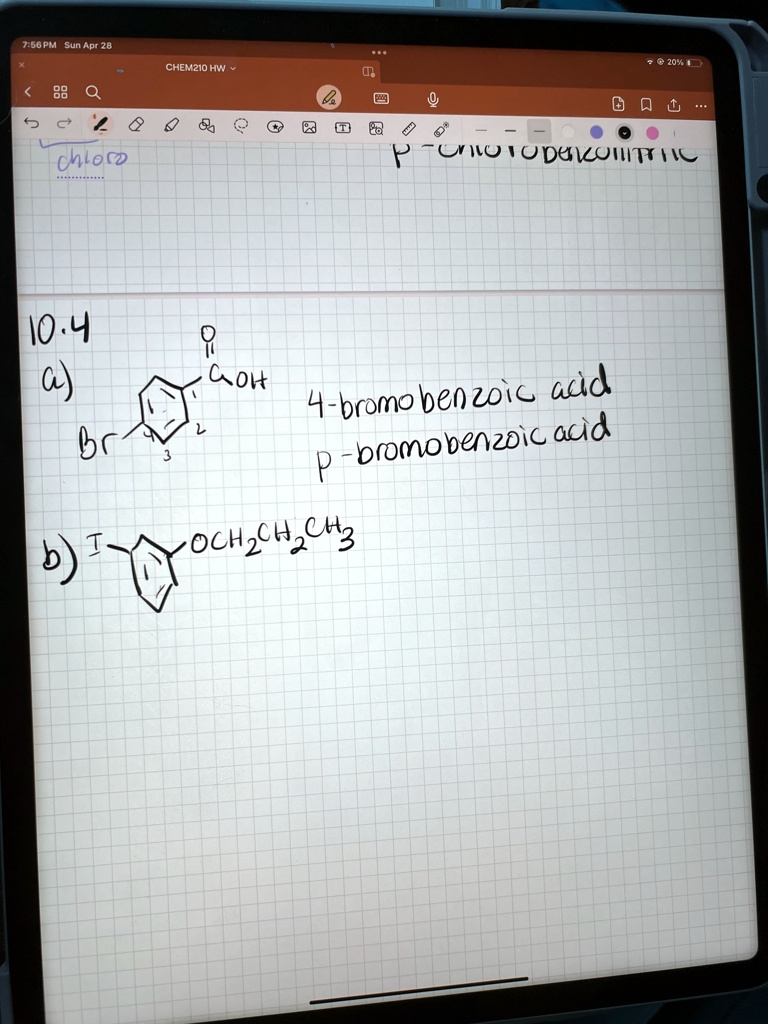 7:56 PM Sun Apr 28
20%
CHEM210 HW
chloro
p-chlorobenzonitrile
10.4
a)
O
C OH
Br 4 3 2 1
4-bromobenzoic acid
p-bromobenzoic acid
b) I OCH2CH2CH3